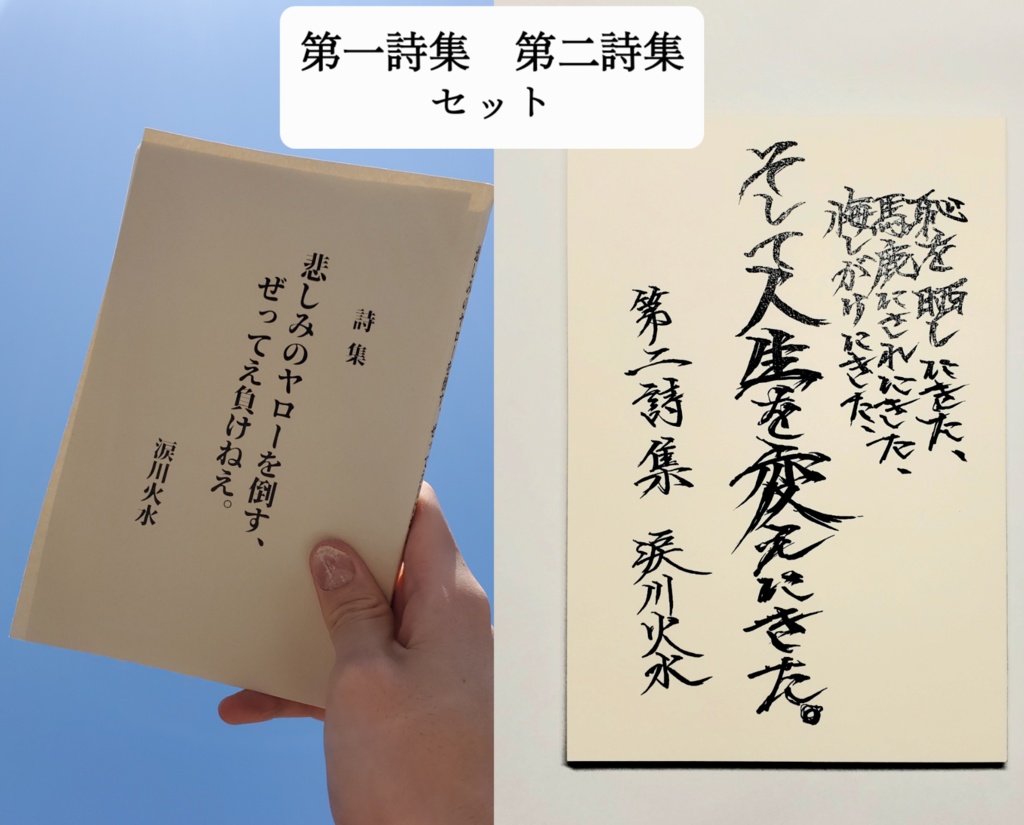 第一詩集　第二詩集
セット
詩集
悲しみのヤローを倒す、
ぜってえ負けねえ。
涙川火水
恥を晒しにきた、
馬鹿にされにきた、
悔しがりにきた、
そして人生を変えにきた。
第二詩集　涙川火水